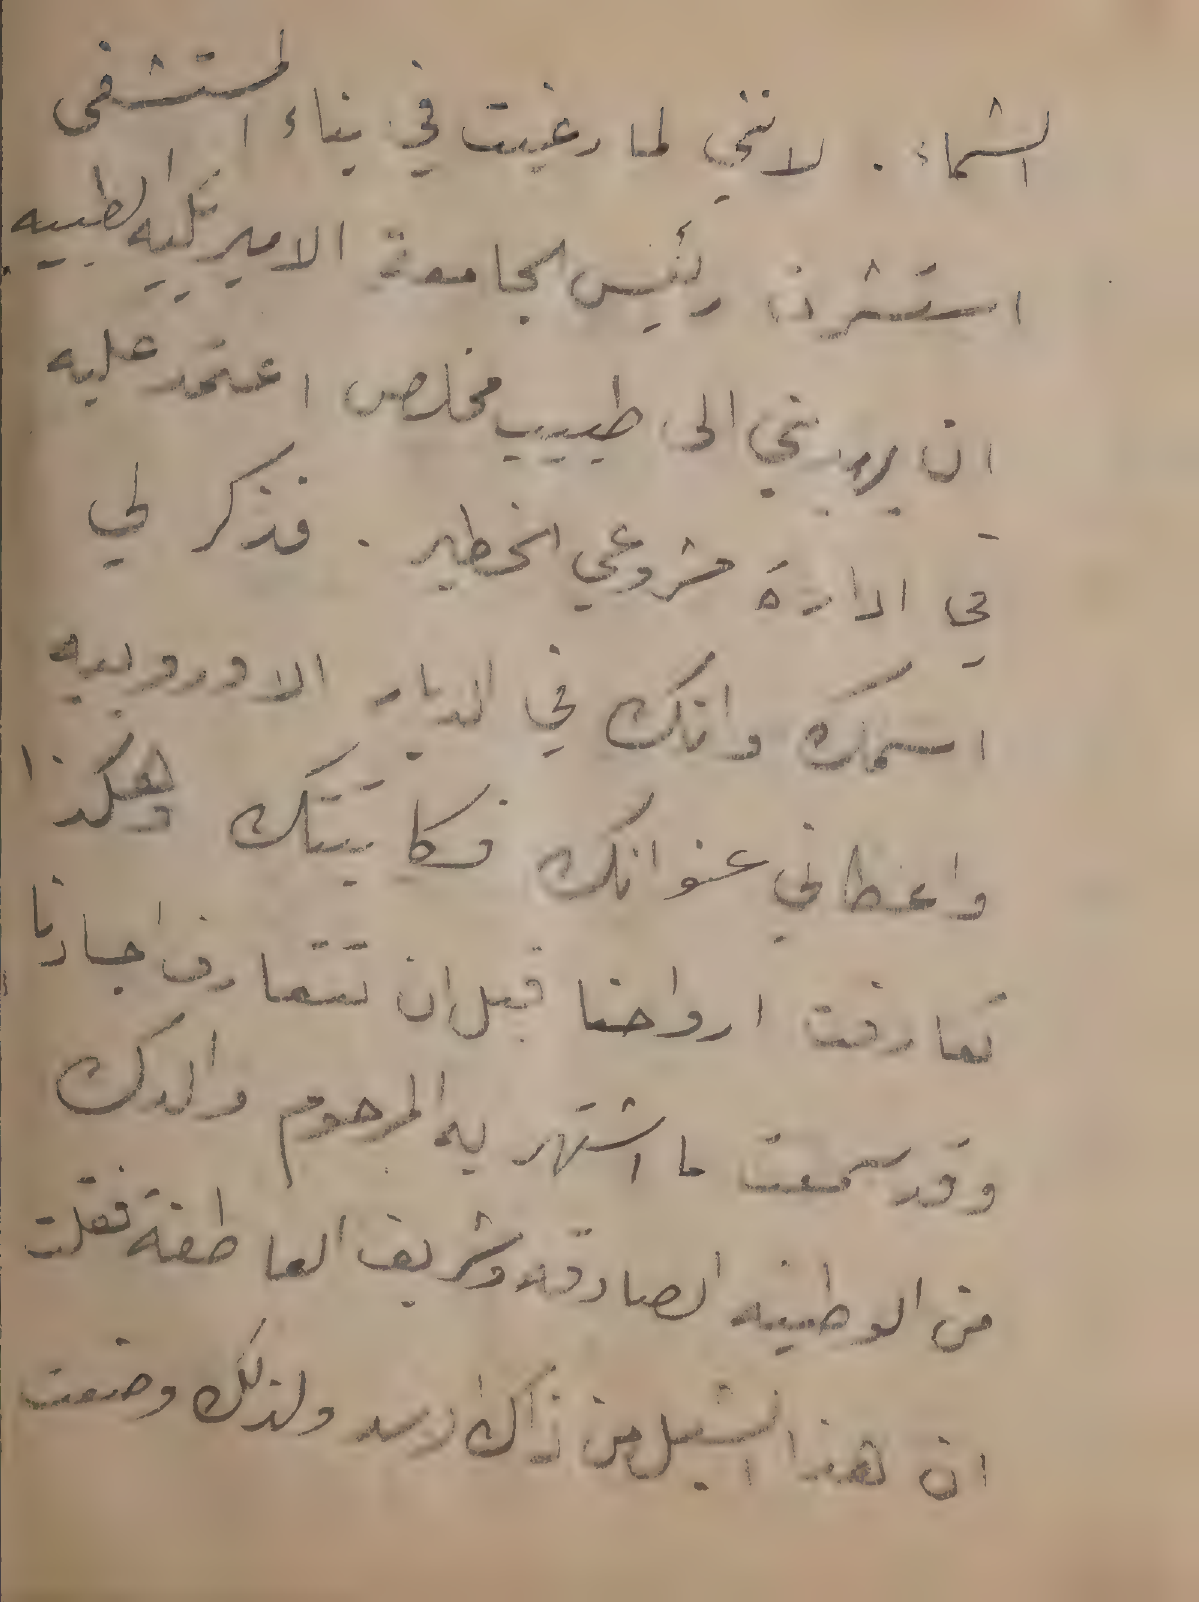 الشماء. لانني لما رغبت في بناء المستشفى
استشرت رئيس الجامعة الاميريكيه الطبيه
ان يهديني الى طبيب مخلص اعتمد عليه
في ادارة مشروعي الخطير. فذكر لي
اسمك وانك في الديار الاوروبيه
واعطاني عنوانك فكاتبتك وهكذا
تعارفت ارواحنا قبل ان تتعارف اجسادنا
وقد سمعت ما اشتهر به المرحوم والدك
من الوطنيه الصادقه وشريف العاطفة فقلت
ان هذا الشبل من ذاك الاسد ولذلك وضعت